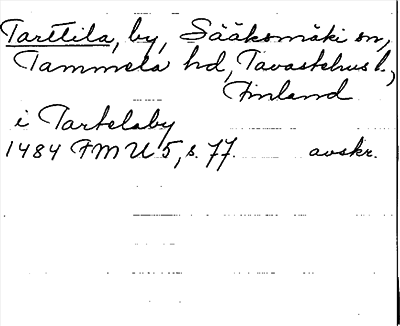 Tarttila, by, Sääksmäki sn,
Tammela hd, Tavastehus l.,
Finland
i Tartelaby
1484 FMU 5, s. 77. avskr.